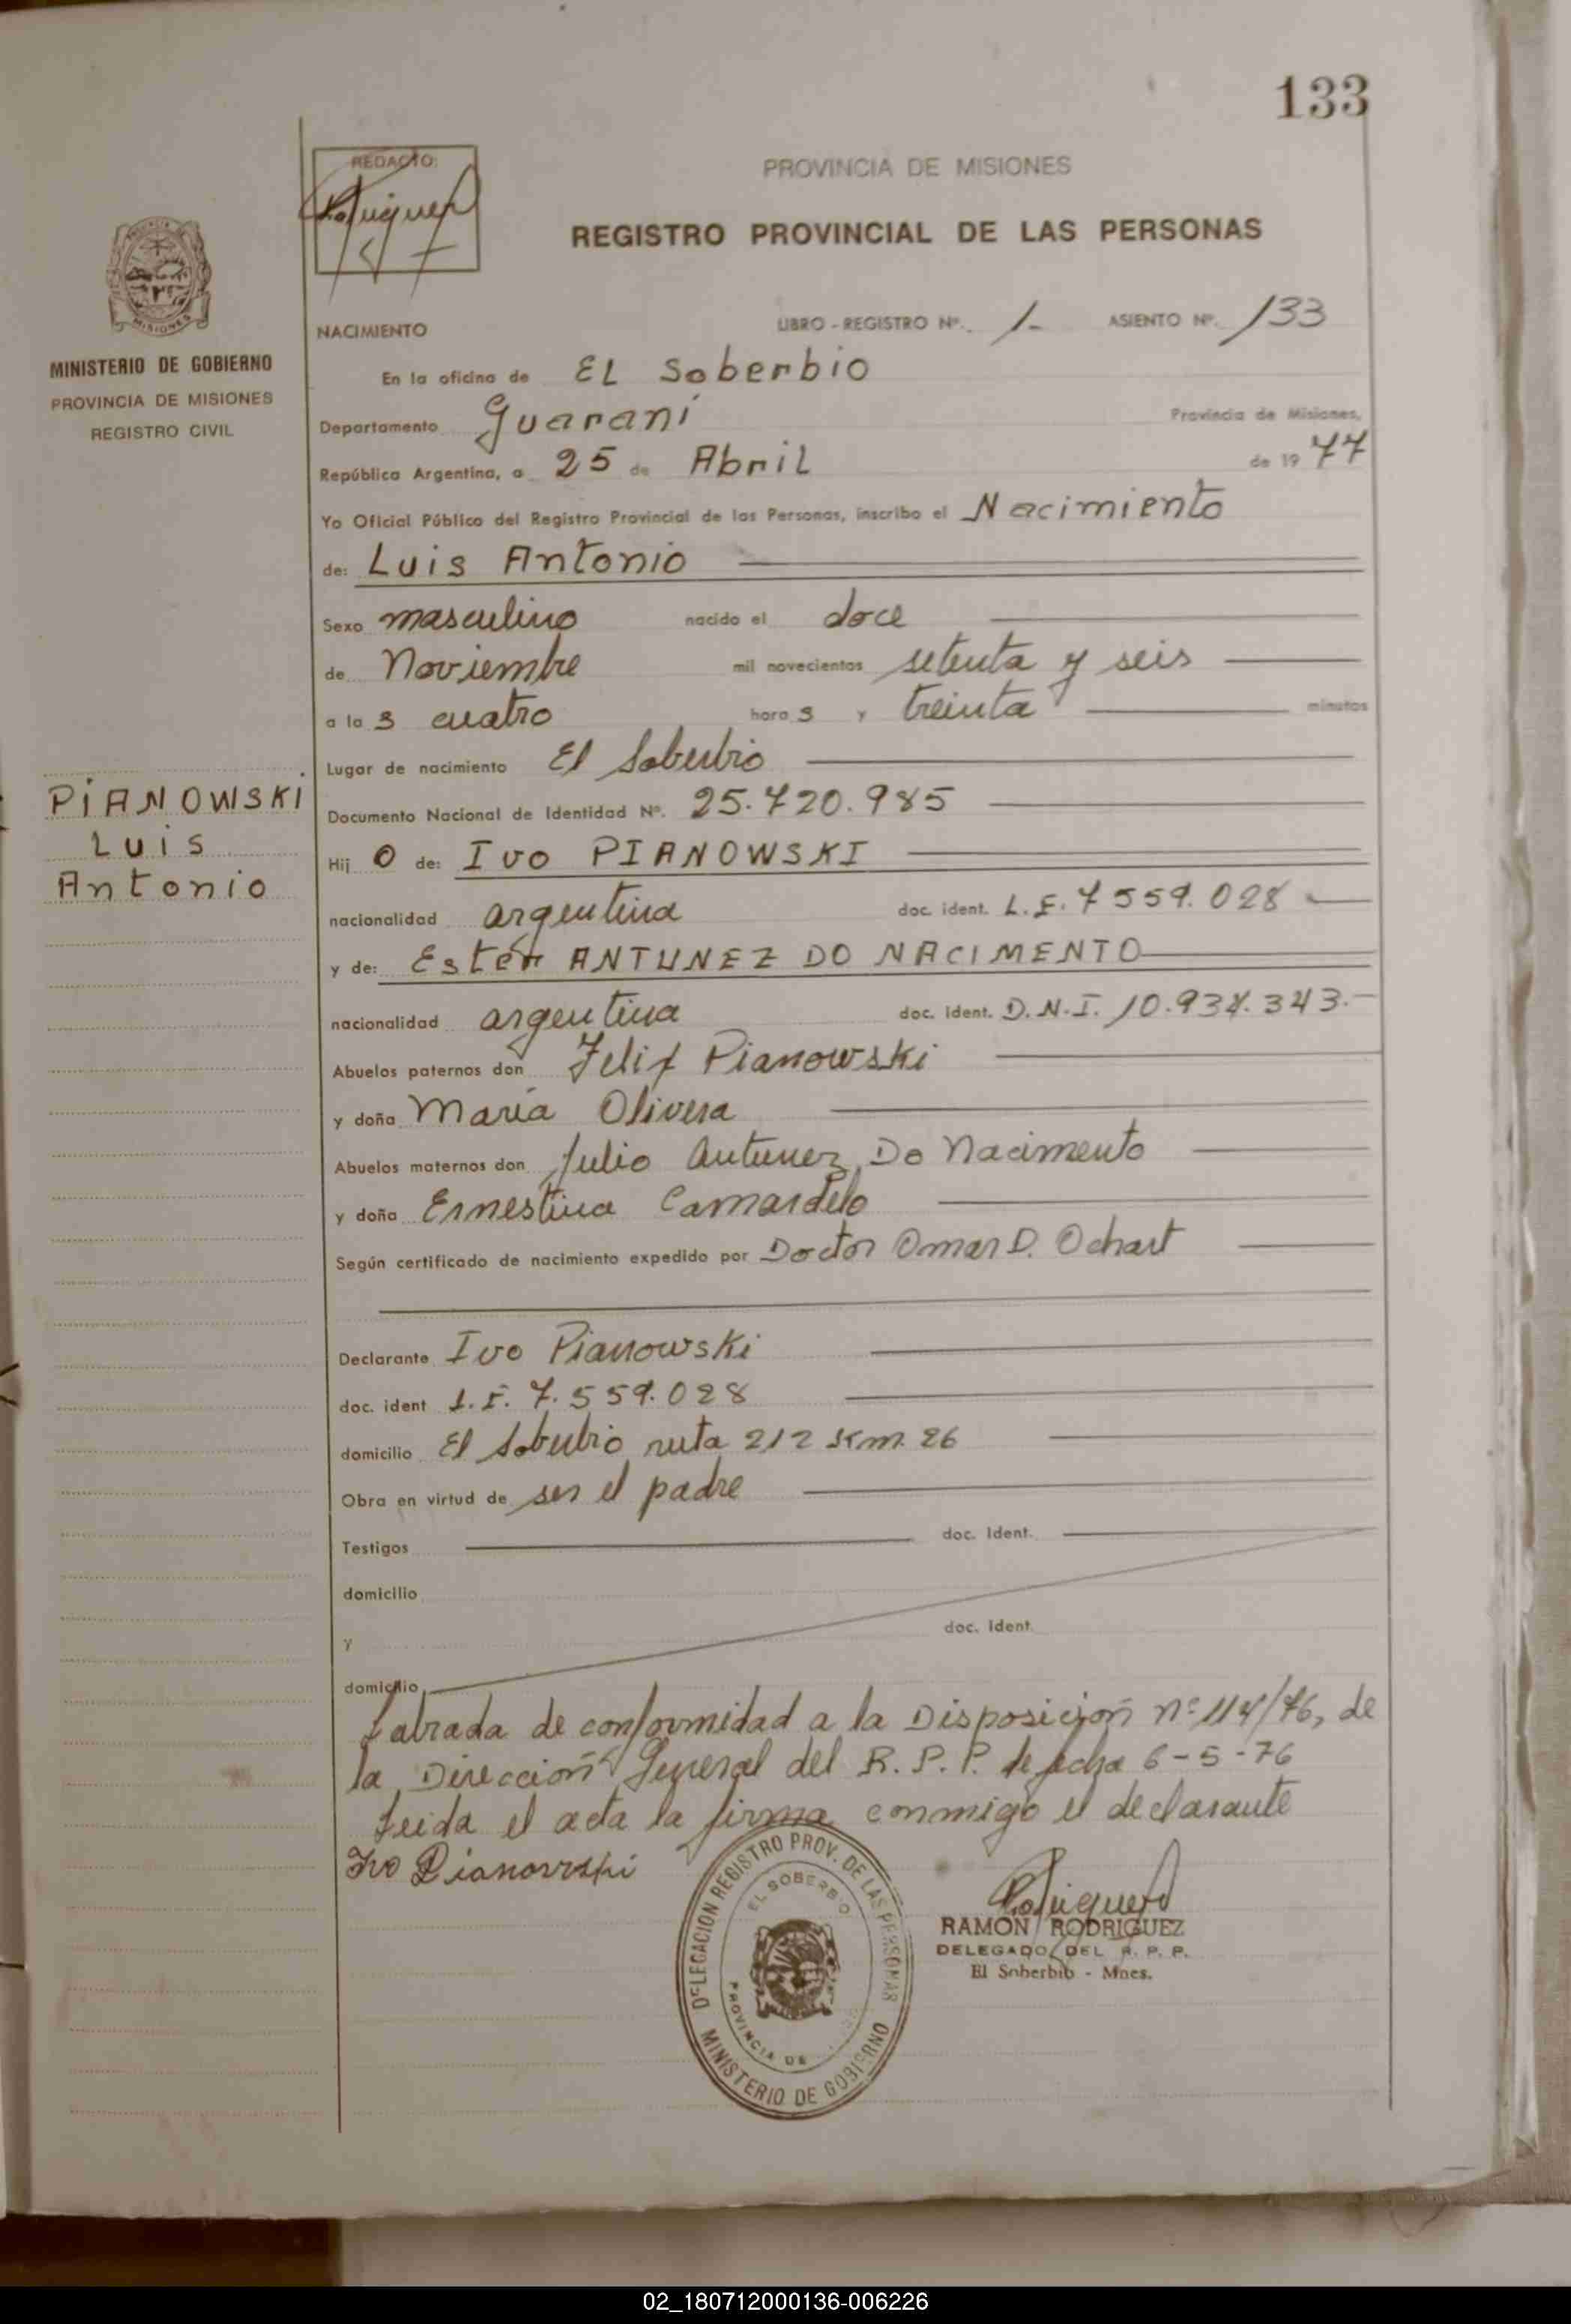 133
REDACTO:
PROVINCIA DE MISIONES
REGISTRO PROVINCIAL DE LAS PERSONAS
MISIONES
MINISTERIO DE GOBIERNO
PROVINCIA DE MISIONES
REGISTRO CIVIL
NACIMIENTO LIBRO - REGISTRO Nº. 1- ASIENTO Nº. 133
En la oficina de EL Soberbio
Departamento Guaraní Provincia de Misiones,
República Argentina, a 25 de Abril de 1977
Yo Oficial Público del Registro Provincial de las Personas, inscribo el Nacimiento
de: Luis Antonio
Sexo masculino nacido el doce
de Noviembre mil novecientos setenta y seis
a las cuatro horas y treinta minutos
Lugar de nacimiento El Soberbio
PIANOWSKI
Luis
Antonio
Documento Nacional de Identidad Nº. 25.720.985
Hijo de: Ivo PIANOWSKI
nacionalidad argentina doc. ident. L.E. 7559.028
y de: Estér ANTUNEZ DO NACIMENTO
nacionalidad argentina doc. ident. D.N.I. 10.934.343.-
Abuelos paternos don Felix Pianowski
y doña María Olivera
Abuelos maternos don Julio Antunez Do Nacimento
y doña Ernestina Camardelo
Según certificado de nacimiento expedido por Doctor Omar D. Ochart
Declarante Ivo Pianowski
doc. ident L.E. 7.559.028
domicilio El Soberbio ruta 212 Km. 26
Obra en virtud de ser el padre
Testigos doc. ident.
domicilio
y doc. ident.
domicilio
Labrada de conformidad a la Disposición nº 114/76, de
la Dirección General del R.P.P. de fecha 6-5-76
Leida el acta la firma conmigo el declarante
Ivo Pianowski
DELEGACION REGISTRO PROV. DE LAS PERSONAS
EL SOBERBIO
PROVINCIA DE
MINISTERIO DE GOBIERNO
RAMON RODRIGUEZ
DELEGADO DEL R. P. P.
El Soberbio - Mnes.
02_180712000136-006226